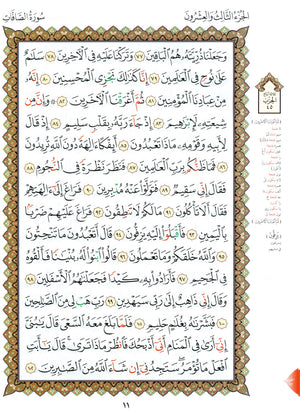 الجزء الثالث والعشرون
سورة الصافات
وَجَعَلْنَا ذُرِّيَّتَهُ هُمُ الْبَاقِينَ ٧٧ وَتَرَكْنَا عَلَيْهِ فِي الْآخِرِينَ ٧٨ سَلَامٌ
عَلَىٰ نُوحٍ فِي الْعَالَمِينَ ٧٩ إِنَّا كَذَٰلِكَ نَجْزِي الْمُحْسِنِينَ ٨٠ إِنَّهُ
مِنْ عِبَادِنَا الْمُؤْمِنِينَ ٨١ ثُمَّ أَغْرَقْنَا الْآخَرِينَ ٨٢ وَإِنَّ مِن
شِيعَتِهِ لَإِبْرَاهِيمَ ٨٣ إِذْ جَاءَ رَبَّهُ بِقَلْبٍ سَلِيمٍ ٨٤ إِذْ قَالَ
لِأَبِيهِ وَقَوْمِهِ مَاذَا تَعْبُدُونَ ٨٥ أَئِفْكًا آلِهَةً دُونَ اللَّهِ تُرِيدُونَ
٨٦ فَمَا ظَنُّكُم بِرَبِّ الْعَالَمِينَ ٨٧ فَنَظَرَ نَظْرَةً فِي النُّجُومِ ٨٨
فَقَالَ إِنِّي سَقِيمٌ ٨٩ فَتَوَلَّوْا عَنْهُ مُدْبِرِينَ ٩٠ فَرَاغَ إِلَىٰ آلِهَتِهِمْ
فَقَالَ أَلَا تَأْكُلُونَ ٩١ مَا لَكُمْ لَا تَنطِقُونَ ٩٢ فَرَاغَ عَلَيْهِمْ ضَرْبًا
بِالْيَمِينِ ٩٣ فَأَقْبَلُوا إِلَيْهِ يَزِفُّونَ ٩٤ قَالَ أَتَعْبُدُونَ مَا تَنْحِتُونَ
٩٥ وَاللَّهُ خَلَقَكُمْ وَمَا تَعْمَلُونَ ٩٦ قَالُوا ابْنُوا لَهُ بُنْيَانًا فَأَلْقُوهُ
فِي الْجَحِيمِ ٩٧ فَأَرَادُوا بِهِ كَيْدًا فَجَعَلْنَاهُمُ الْأَسْفَلِينَ ٩٨
وَقَالَ إِنِّي ذَاهِبٌ إِلَىٰ رَبِّي سَيَهْدِينِ ٩٩ رَبِّ هَبْ لِي مِنَ الصَّالِحِينَ
١٠٠ فَبَشَّرْنَاهُ بِغُلَامٍ حَلِيمٍ ١٠١ فَلَمَّا بَلَغَ مَعَهُ السَّعْيَ قَالَ يَا بُنَيَّ
إِنِّي أَرَىٰ فِي الْمَنَامِ أَنِّي أَذْبَحُكَ فَانظُرْ مَاذَا تَرَىٰ قَالَ يَا أَبَتِ
افْعَلْ مَا تُؤْمَرُ سَتَجِدُنِي إِن شَاءَ اللَّهُ مِنَ الصَّابِرِينَ ١٠٢
١١